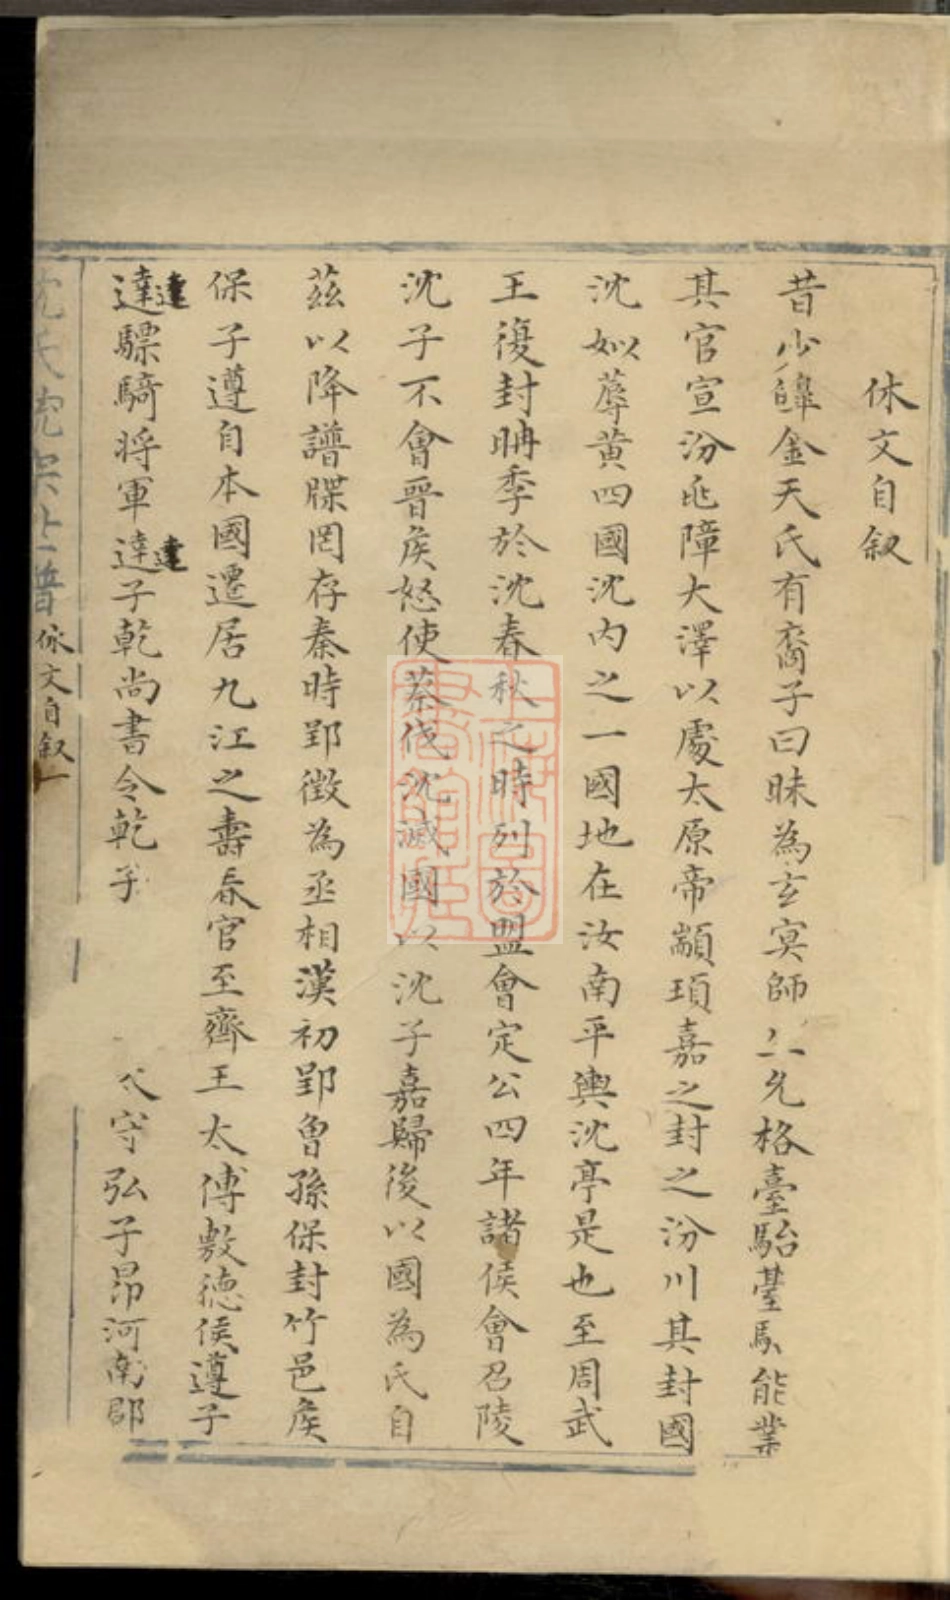 休文自叙
昔少皞金天氏有裔子曰昧為玄冥師生允格臺駘臺駘能業
其官宣汾洮障大澤以處太原帝顓頊嘉之封之汾川其封國
沈姒蓐黄四國沈内之一國地在汝南平輿沈亭是也至周武
王復封聃季於沈春秋之時列於盟會定公四年諸侯會召陵
沈子不會晉矦怒使蔡伐沈滅國以沈子嘉歸後以國為氏自
茲以降譜牒罔存秦時郢徵為丞相漢初郢曾孫保封竹邑矦
保子遵自本國遷居九江之壽春官至齊王太傅敷徳侯遵子
達驃騎将軍達子乾尚書令乾子 太守弘子昂河南郡
沈氏 休文自叙 一
上海圖書館藏